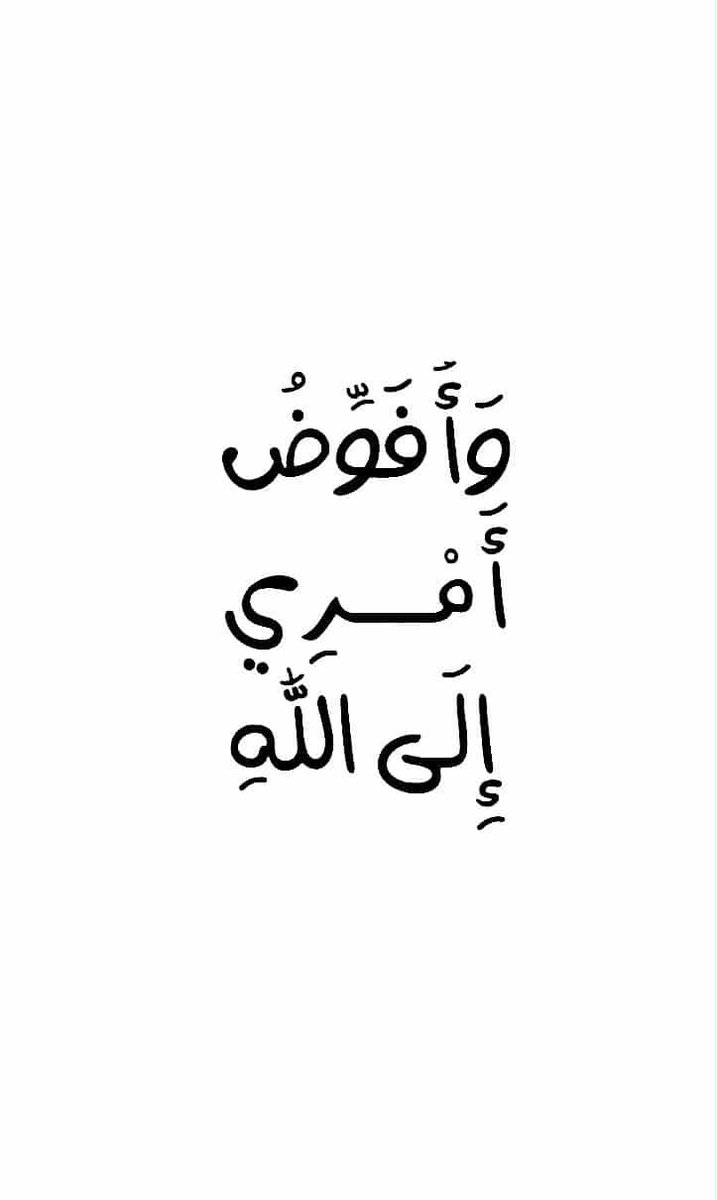 وَأَفَوِّضُ
أَمْـــرِي
إِلَى اللَّهِ